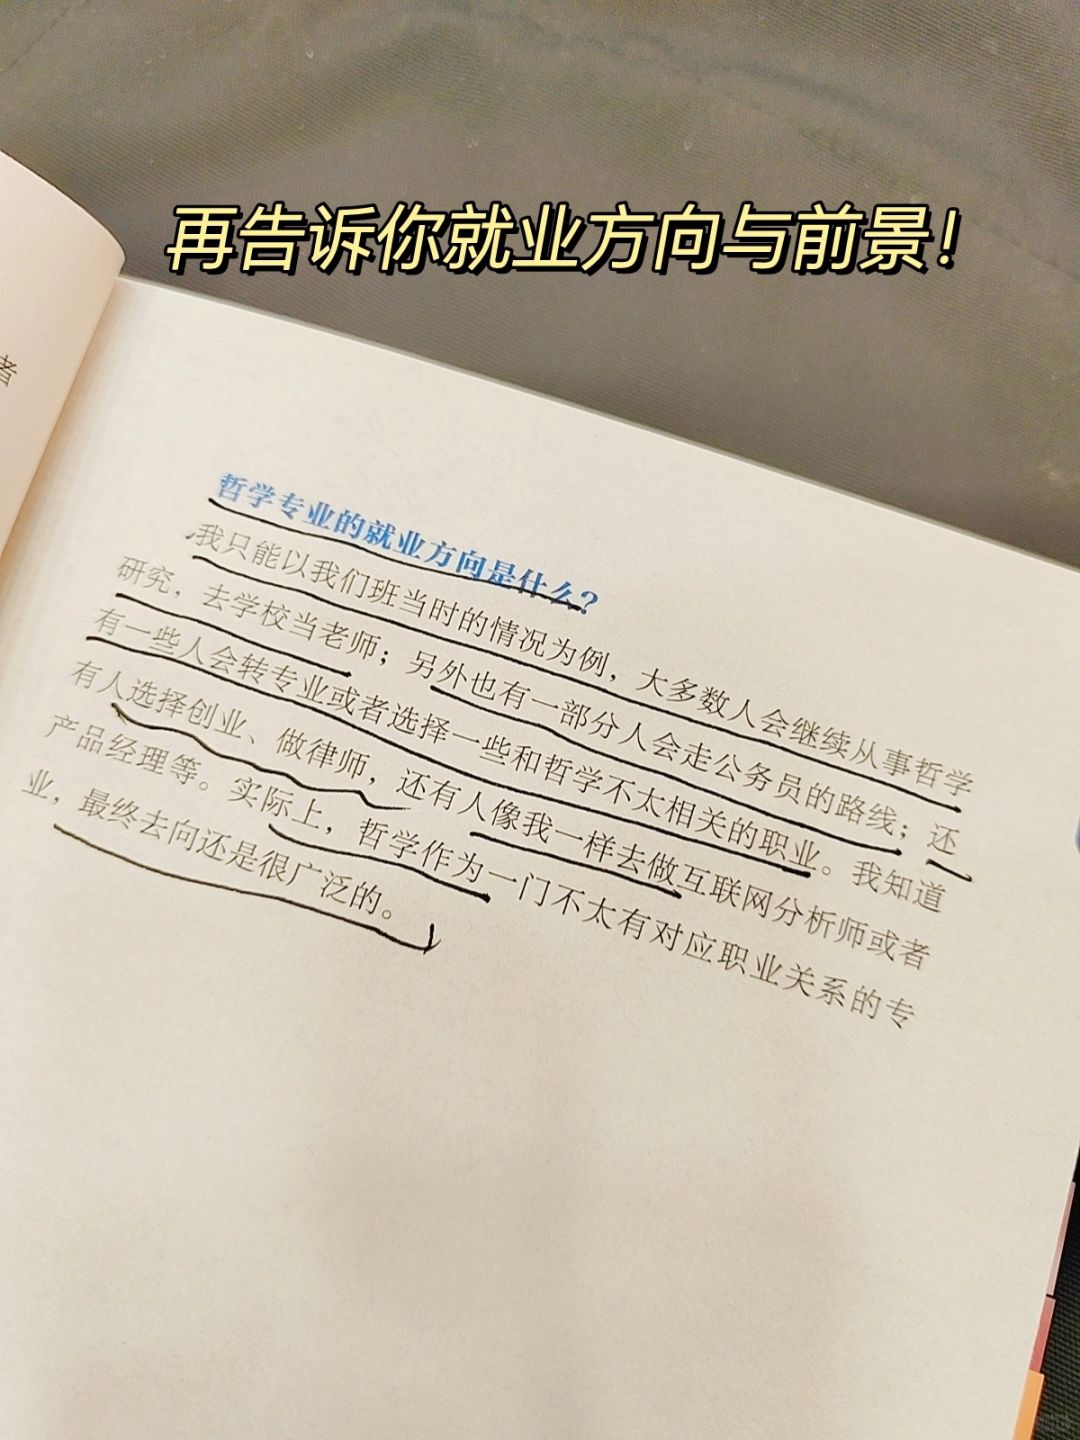 再告诉你就业方向与前景！
者
哲学专业的就业方向是什么？
我只能以我们班当时的情况为例，大多数人会继续从事哲学
研究，去学校当老师；另外也有一部分人会走公务员的路线；还
有一些人会转专业或者选择一些和哲学不太相关的职业。我知道
有人选择创业、做律师，还有人像我一样去做互联网分析师或者
产品经理等。实际上，哲学作为一门不太有对应职业关系的专
业，最终去向还是很广泛的。